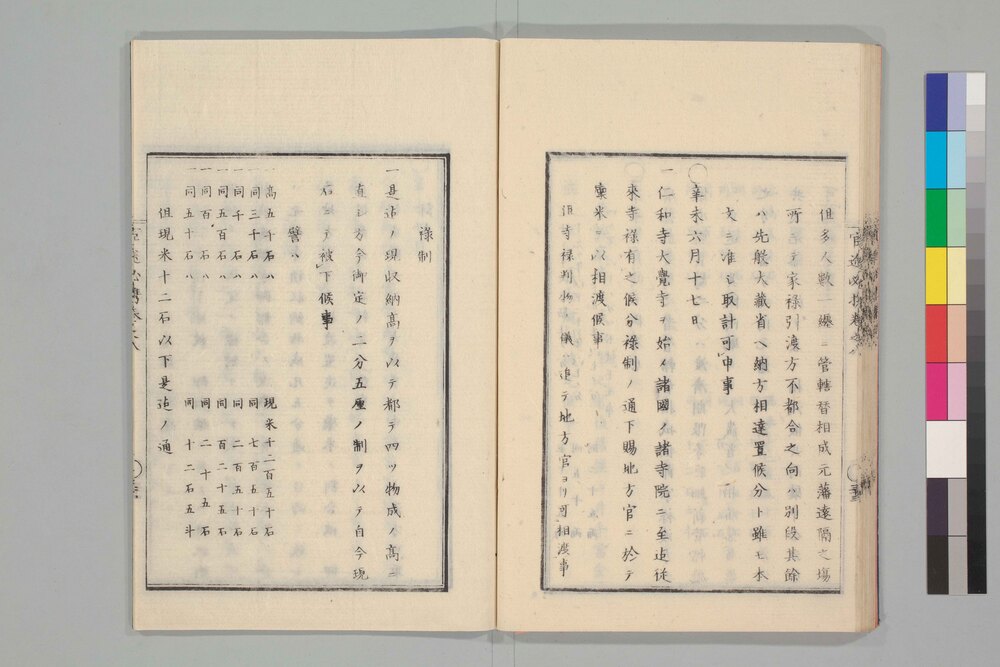 但多人數一纏ニ管轄替相成元藩遠隔之場
所ニテ家祿引渡方不都合之向ハ別段其餘
ハ先般大藏省ヘ納方相達置候分ト雖モ本
文ニ准シ取計可申事
辛未六月十七日
一仁和寺大覺寺ヲ始メ諸國ノ諸寺院ニ至迄從
來寺祿有之候分祿制ノ通下賜地方官ニ於テ
稟米ヲ以相渡候事
但寺祿判物ノ儀ハ追テ地方官ヨリ可相渡事
祿制
一是迄ノ現収納高ヲ以テ都テ四ツ物成ノ高ニ
直シ方今御定ノ二分五厘ノ制ヲ以テ自今現
石ニテ被下候事
譬ハ
高五千石ハ 現米千二百五十石
同三千石ハ 同七百五十石
同千石ハ 同二百五十石
同五百石ハ 同百二十五石
同百石ハ 同二十五石
同五十石ハ 同十二石五斗
但現米十二石以下是迄ノ通